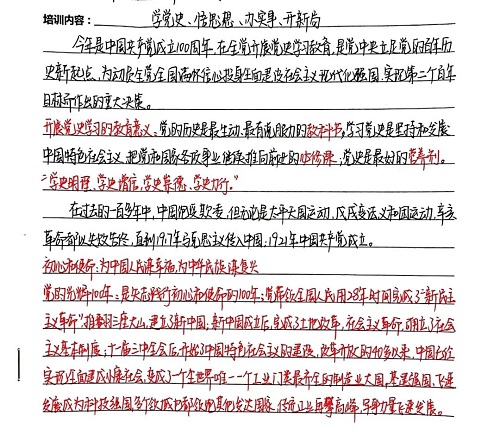 培训内容：学党史、悟思想、办实事、开新局
今年是中国共产党成立100周年，在全党开展党史学习教育，是党中央立足党的百年历
史新起点，为动员全党全国满怀信心投身全面建设社会主义现代化强国，实现第二个百年
目标而作出的重大决策。
开展党史学习的教育意义、党的历史是最生动、最有说服力的教科书，学习党史是坚持和发展
中国特色社会主义，把党和国家各政事业继续推向前进的必修课；党史是最好的营养剂。
"学史明理、学史增信、学史崇德、学史力行。"
在过去的一百多年中，中国但无论是太平天国运动，戊戌变法义和团运动，辛亥
革命都以失败告终，直到1917年马克思主义传入中国，1921年中国共产党成立。
初心和使命：为中国人民谋幸福，为中华民族谋复兴
党的光辉100年：是矢志践行初心和使命的100年；党带领全国人民用28年时间完成了"新民主
主义革命"推翻三座大山，建立了新中国；新中国成立后，完成了土地改革，社会主义革命，确立了社会
主义基本制度；十一届三中全会后，开始了中国特色社会主义的建设，改革开放的40多以来，中国
实现全面建成小康社会，变成了一个全世界唯一一个工业门类最齐全的制造业大国，基建强国，飞速
发展成为科技强国多个领域都领跑其他发达国家，传统工业再攀高峰，导弹力量飞速发展。